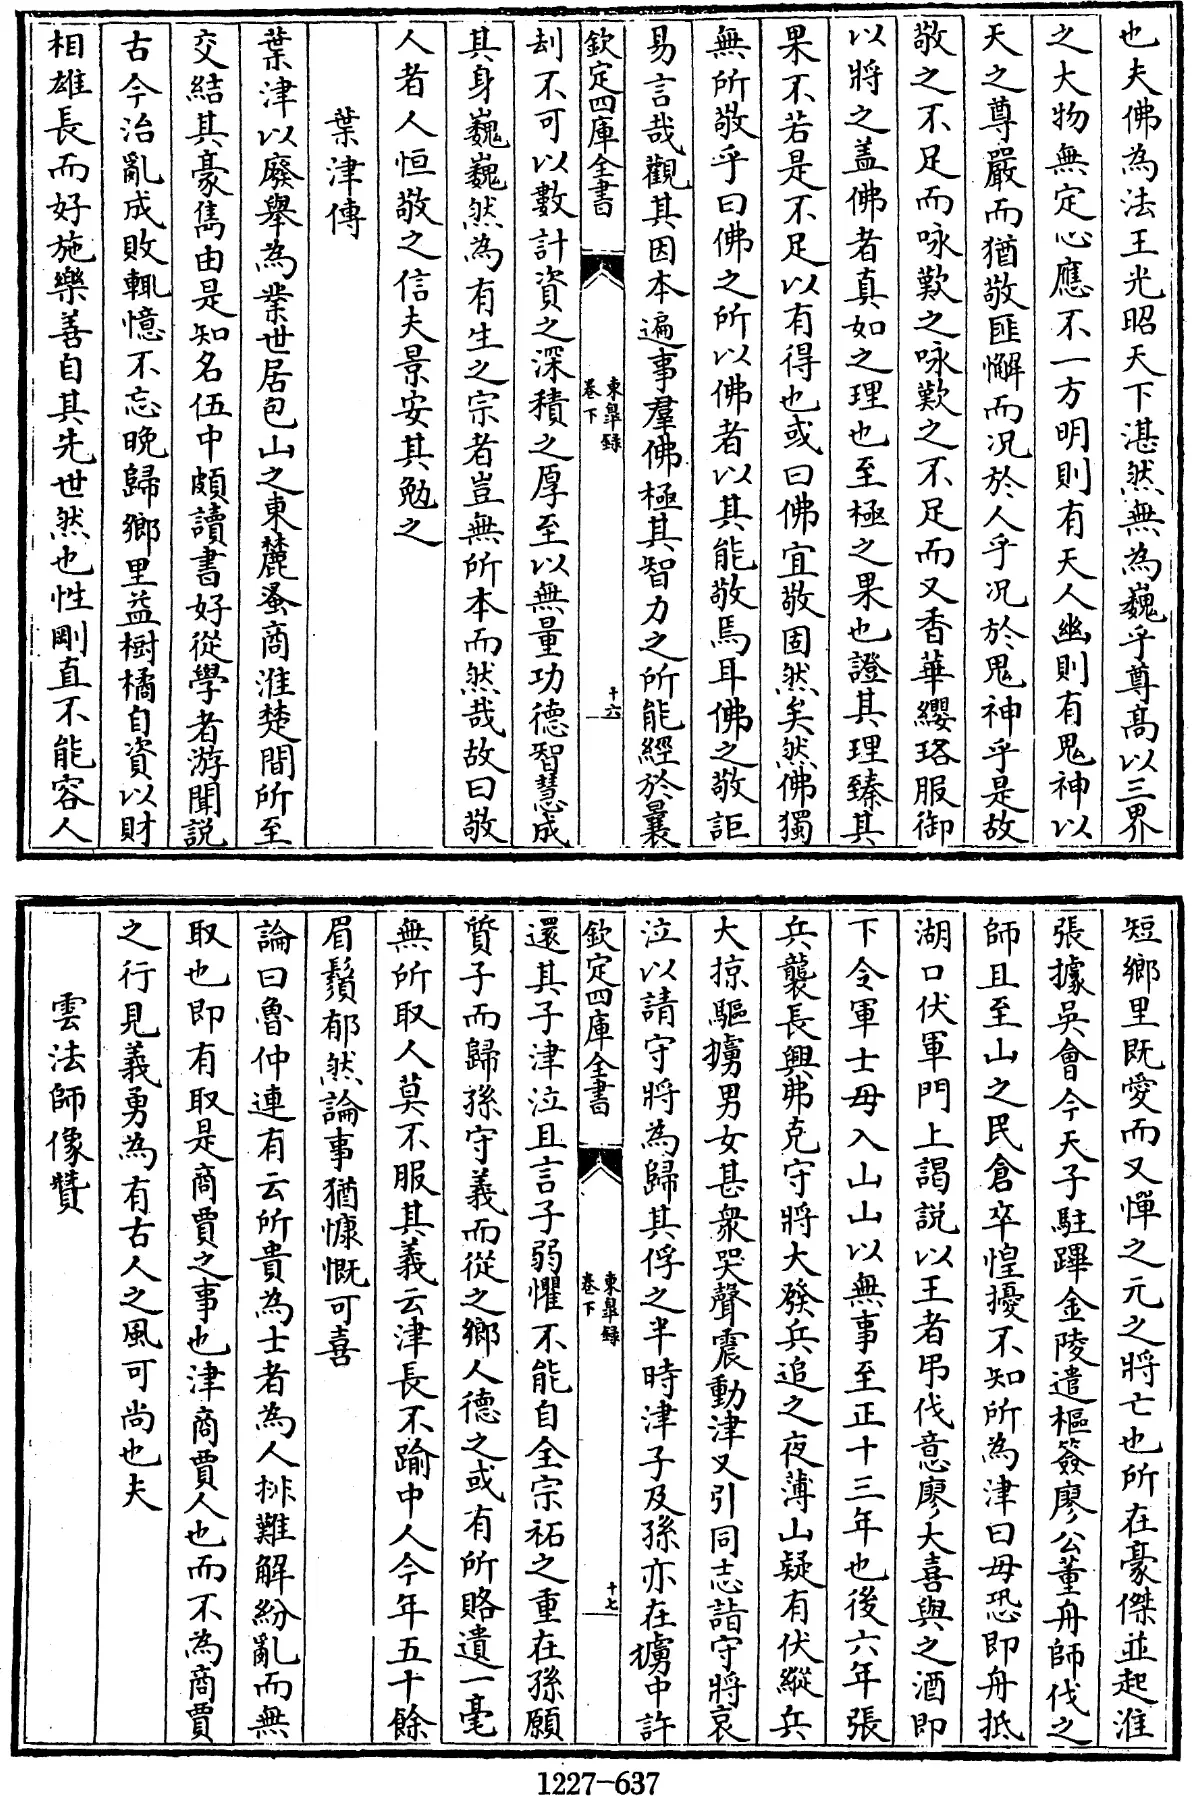 也夫佛為法王光昭天下湛然無為巍乎尊髙以三界
之大物無定心應不一方明則有天人幽則有鬼神以
天之尊嚴而猶敬匪懈而况於人乎况於鬼神乎是故
敬之不足而咏歎之咏歎之不足而又香華纓珞服御
以將之盖佛者真如之理也至極之果也證其理臻其
果不若是不足以有得也或曰佛宜敬固然矣然佛獨
無所敬乎曰佛之所以佛者以其能敬焉耳佛之敬詎
易言哉觀其因本遍事羣佛極其智力之所能經於曩
欽定四庫全書
東臯録
卷下
十六
刦不可以數計資之深積之厚至以無量功德智慧成
其身巍巍然為有生之宗者豈無所本而然哉故曰敬
人者人恒敬之信夫景安其勉之
葉津傳
葉津以廢舉為業世居包山之東麓蚤商淮楚間所至
交結其豪雋由是知名伍中頗讀書好從學者游聞説
古今治亂成敗輒憶不忘晚歸鄉里益樹橘自資以財
相雄長而好施樂善自其先世然也性剛直不能容人
短鄉里既愛而又憚之元之將亡也所在豪傑並起淮
張據吳會今天子駐蹕金陵遣樞簽廖公董舟師伐之
師且至山之民倉卒惶擾不知所為津曰毋恐即舟抵
湖口伏軍門上謁説以王者弔伐意廖大喜與之酒即
下令軍士毋入山山以無事至正十三年也後六年張
兵襲長興弗克守將大發兵追之夜薄山疑有伏縱兵
大掠驅擄男女甚衆哭聲震動津又引同志詣守將哀
泣以請守將為歸其俘之半時津子及孫亦在擄中許
欽定四庫全書
東臯録
卷下
十七
還其子津泣且言子弱懼不能自全宗祏之重在孫願
質子而歸孫守義而從之鄉人德之或有所賂遺一毫
無所取人莫不服其義云津長不踰中人今年五十餘
眉鬚郁然論事猶慷慨可喜
論曰魯仲連有云所貴為士者為人排難解紛亂而無
取也即有取是商賈之事也津商賈人也而不為商賈
之行見義勇為有古人之風可尚也夫
雲法師像贊
1227-637